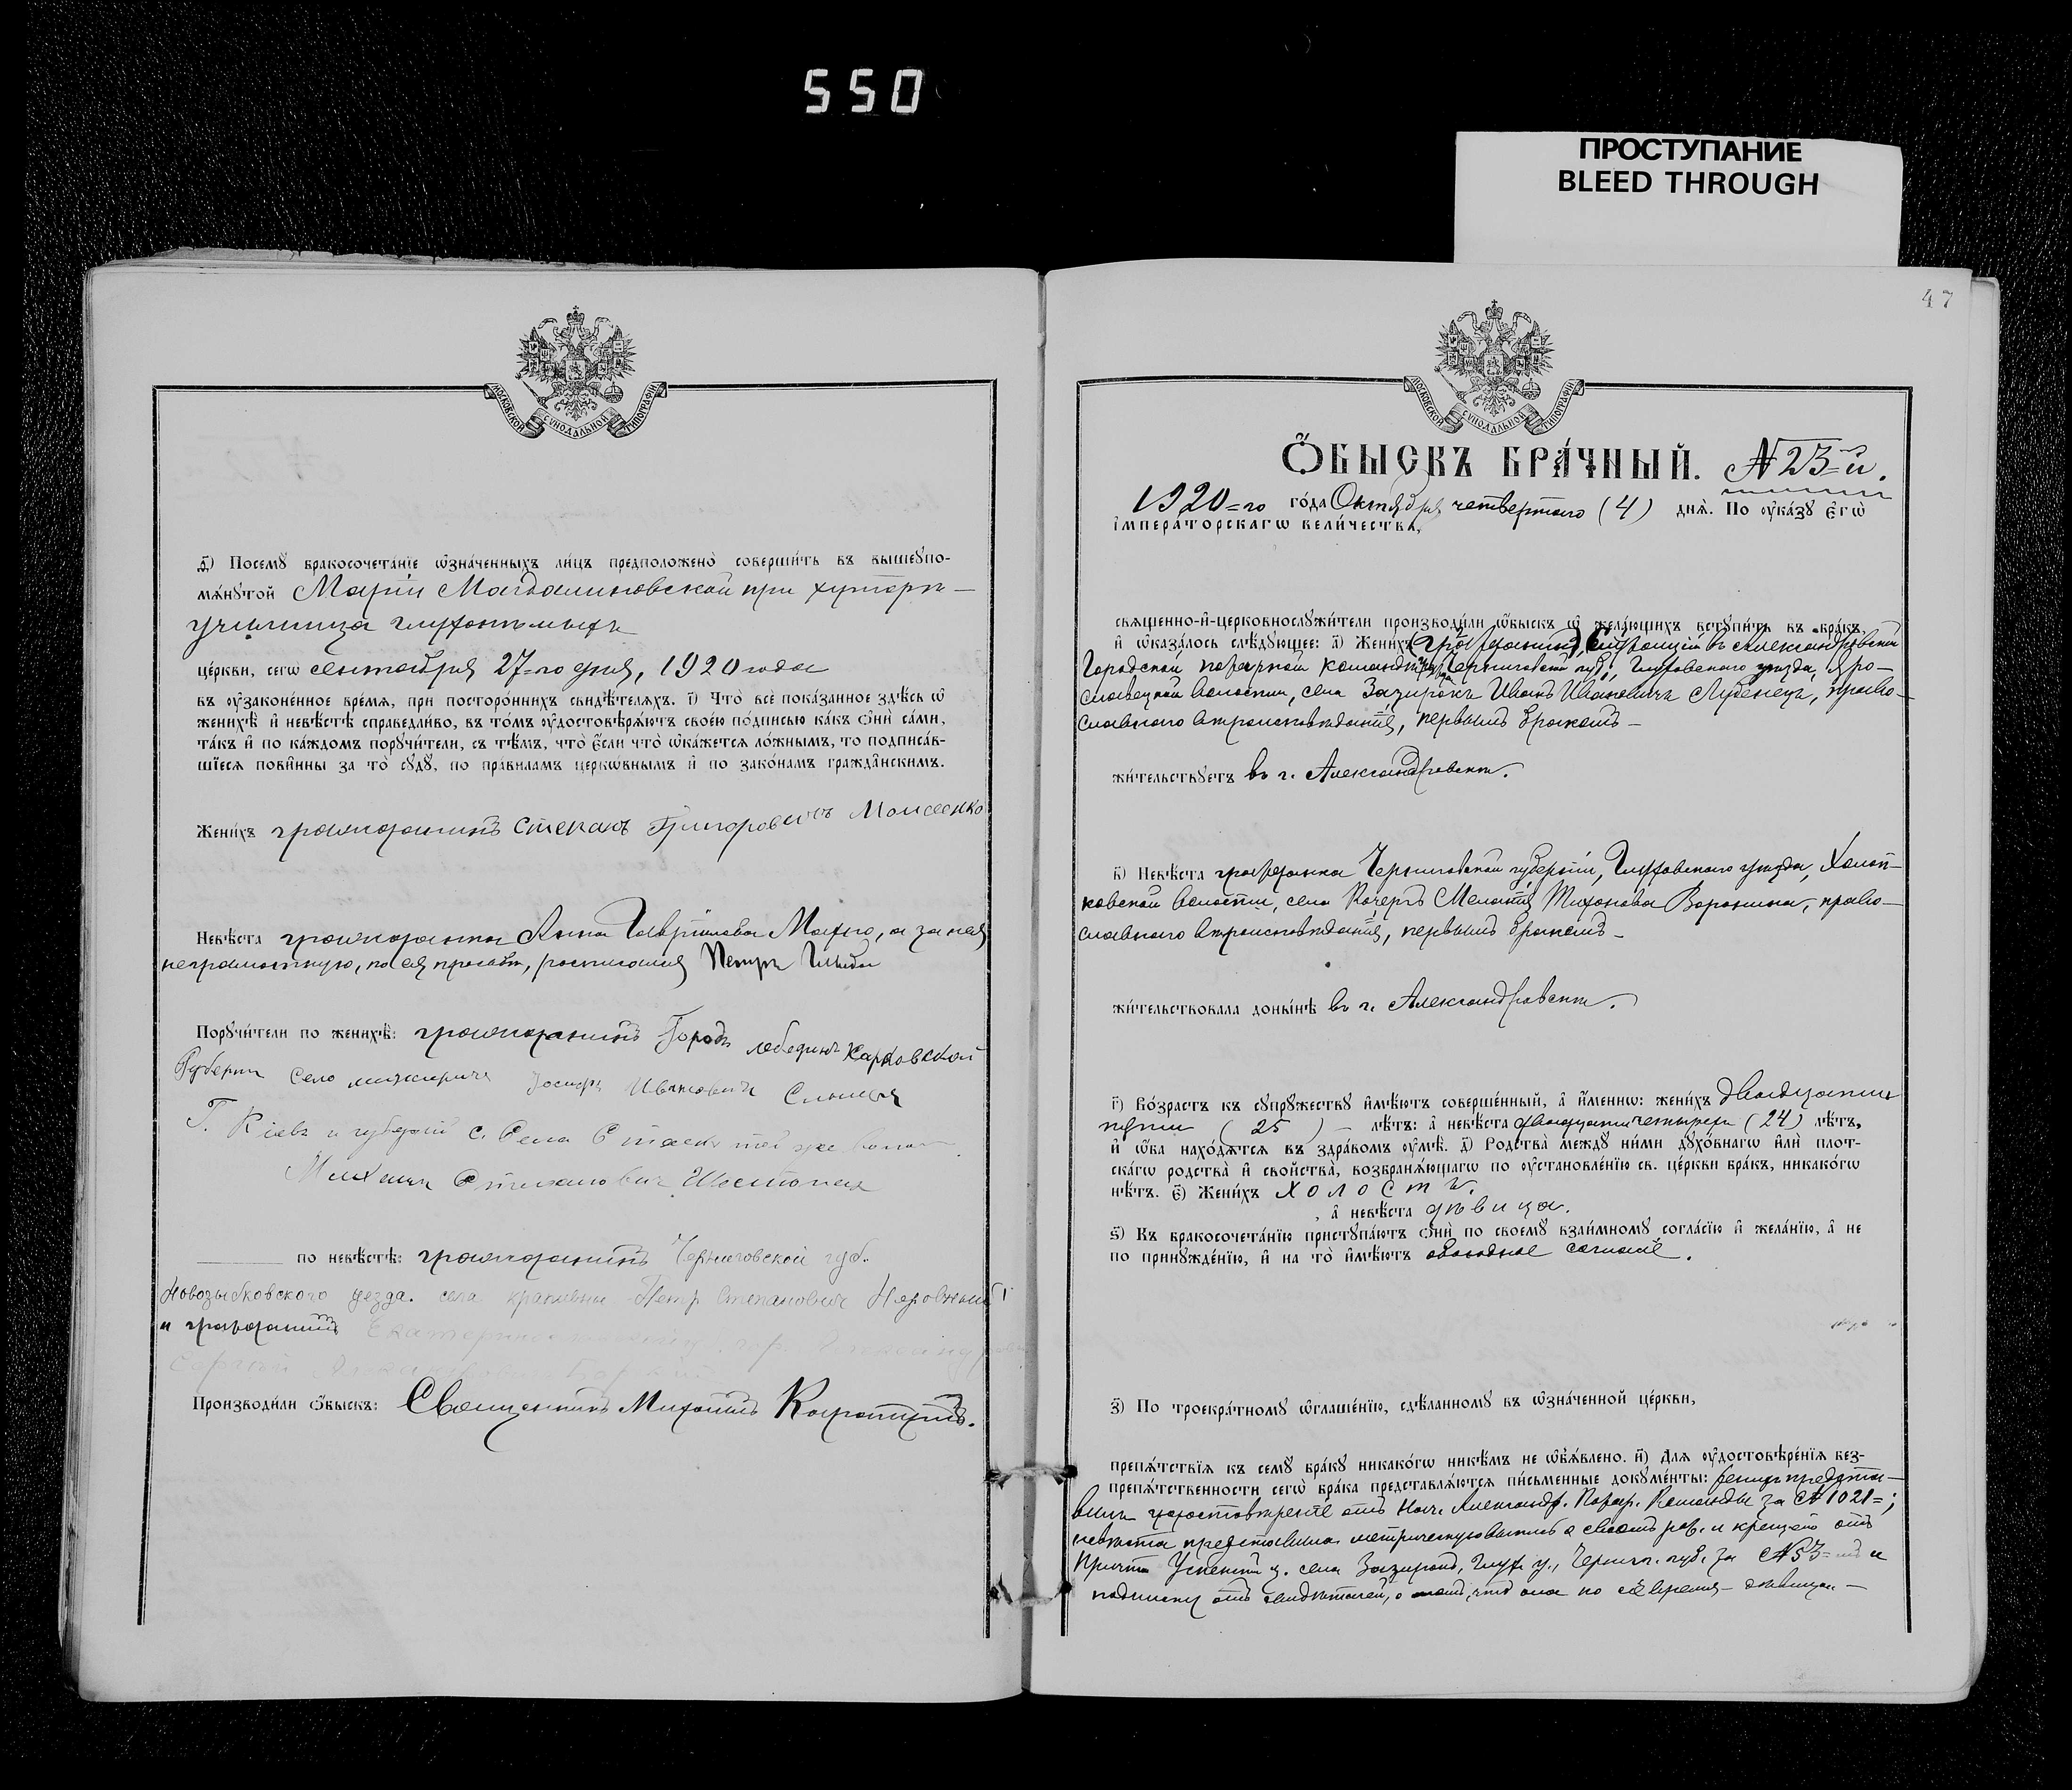 550
ПРОСТУПАНИЕ
BLEED THROUGH
МОСКОВСКОЙ СѴНОДАЛЬНОЙ ТИПОГРАФІИ
д҃) Посемꙋ бракосочета́нїе ѡ҆зна́ченныхъ ли́цъ предположено̀ соверши́ть въ вышеꙋпо-
мѧ́нꙋтой Маріи Магдалиновской при хуторѣ
училища глухонѣмыхъ
це́ркви, сегѡ̀ сентября 27-го дня, 1920 года
въ ᲂу҆зако́ненное вре́мѧ, при посторо́ннихъ свидѣ́телѧхъ. і҃) Что̀ всѐ пока́занное здѣ́сь ѡ҆
женихѣ̀ и҆ невѣ́стѣ справедли́во, въ то́мъ ᲂу҆достовѣрѧ́ютъ свое́ю по́дписью ка́къ ѻ҆нѝ са́ми,
та́къ и҆ по ка́ждомъ порꙋчи́тели, съ тѣ́мъ, что̀ є҆́сли что̀ ѡ҆ка́жетсѧ ло́жнымъ, то подписа́в-
шїесѧ пови́нны за то̀ сꙋдꙋ̀, по пра́виламъ церко́внымъ и҆ по зако́намъ гражда́нскимъ.
Жени́хъ гражданинъ Степанъ Григоровичъ Моисеенко
Невѣ́ста гражданка Анна Гавріилова Махно, а за нея
неграмотную, по ея просьбѣ, росписался Петръ
Порꙋчи́тели по женихѣ̀: гражданинъ Городъ лебединъ Харковской
Губерни Село межирича Іосифъ Ивановичъ
Г. Кіевъ и губерній с. Села той же
Михаилъ Степановичъ
по невѣ́стѣ: гражданинъ Черниговской губ.
Новозыбковского уезда. села Петр Степанович
и гражданинъ
Сергѣй
Производи́ли ѻ҆́быскъ: Священникъ Михаилъ
47
МОСКОВСКОЙ СѴНОДАЛЬНОЙ ТИПОГРАФІИ
Ѻ҆́быскъ бра́чный. № 23-й.
1920-го го́да Октября четвертого (4) днѧ̀. По ᲂу҆ка́зꙋ є҆гѡ̀
і҆мпера́торскагѡ вели́чества,
свѧще́нно-и҆-церковнослꙋжи́тели производи́ли ѻ҆́быскъ ѡ҆ жела́ющихъ встꙋпи́ть въ бра́къ,
и҆ ѡ҆каза́лось слѣ́дꙋющее: а҃) Жени́хъ гражданинъ, служащій въ Александровской
Городской пожарной командѣ, Черниговской губ., Глуховского уѣзда, Яро-
славецкой волости, села Зазирокъ Иванъ Ивановичъ Лубенецъ, право-
славного вѣроисповѣданія, первымъ бракомъ
жи́тельствꙋетъ въ г. Александровскѣ.
в҃) Невѣ́ста гражданка Черниговской губерніи, Глуховского уѣзда, Холоп-
ковской волости, села Кочергъ Меланія Тихонова Воронина, право-
славного вѣроисповѣданія, первымъ бракомъ
жи́тельствовала доны́нѣ въ г. Александровскѣ.
г҃) Во́зрастъ къ сꙋпрꙋ́жествꙋ и҆мѣ́ютъ соверше́нный, а҆ и҆́меннѡ: жени́хъ двадцати
пяти (25) лѣ́тъ: а҆ невѣ́ста двадцати четырехъ (24) лѣ́тъ,
и҆ ѻ҆́ба нахо́дѧтсѧ въ здра́вомъ ᲂу҆мѣ̀. д҃) Родства̀ междꙋ ни́ми дꙋхо́внагѡ и҆лѝ пло́т-
скагѡ родства̀ и҆ свойства̀, возбранѧ́ющагѡ по ᲂу҆становле́нїю св. це́ркви бра́къ, никако́гѡ
нѣ́тъ. є҃) Жени́хъ холостъ.
, а҆ невѣ́ста дѣвица.
ѕ҃) Къ бракосочета́нїю пристꙋпа́ютъ ѻ҆нѝ по своемꙋ̀ взаи́мномꙋ согла́сїю и҆ жела́нїю, а҆ не
по принꙋжде́нїю, и҆ на то̀ и҆мѣ́ютъ обоюдное согласіе.
з҃) По троекра́тномꙋ ѡ҆глаше́нїю, сдѣ́ланномꙋ въ ѡ҆зна́ченной це́ркви,
препѧ́тствїѧ къ семꙋ̀ бра́кꙋ никако́гѡ никѣ́мъ не ѡ҆б̾ѧ́влено. и҃) Длѧ ᲂу҆достовѣре́нїѧ без-
препѧ́тственности сегѡ̀ бра́ка представлѧ́ютсѧ пи́сьменные докꙋме́нты: женихъ предста-
вилъ удостовѣреніе отъ Нач. Александр. Пожар. Команды за № 1021=;
невѣста представила метрическую выпись о своемъ рожд. и крещеніи отъ
Причта Успенской ц. села Зазирокъ, Глух. у., Черниг. губ. за № 53= и
подписку отъ свидѣтелей, о томъ, что она по сіе время дѣвица